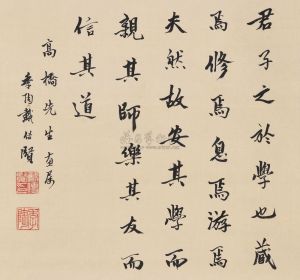 君子之於學也藏
焉修焉息焉游焉
夫然故安其學而
親其師樂其友而
信其道
高橋先生肖屬
季陶戴傳賢